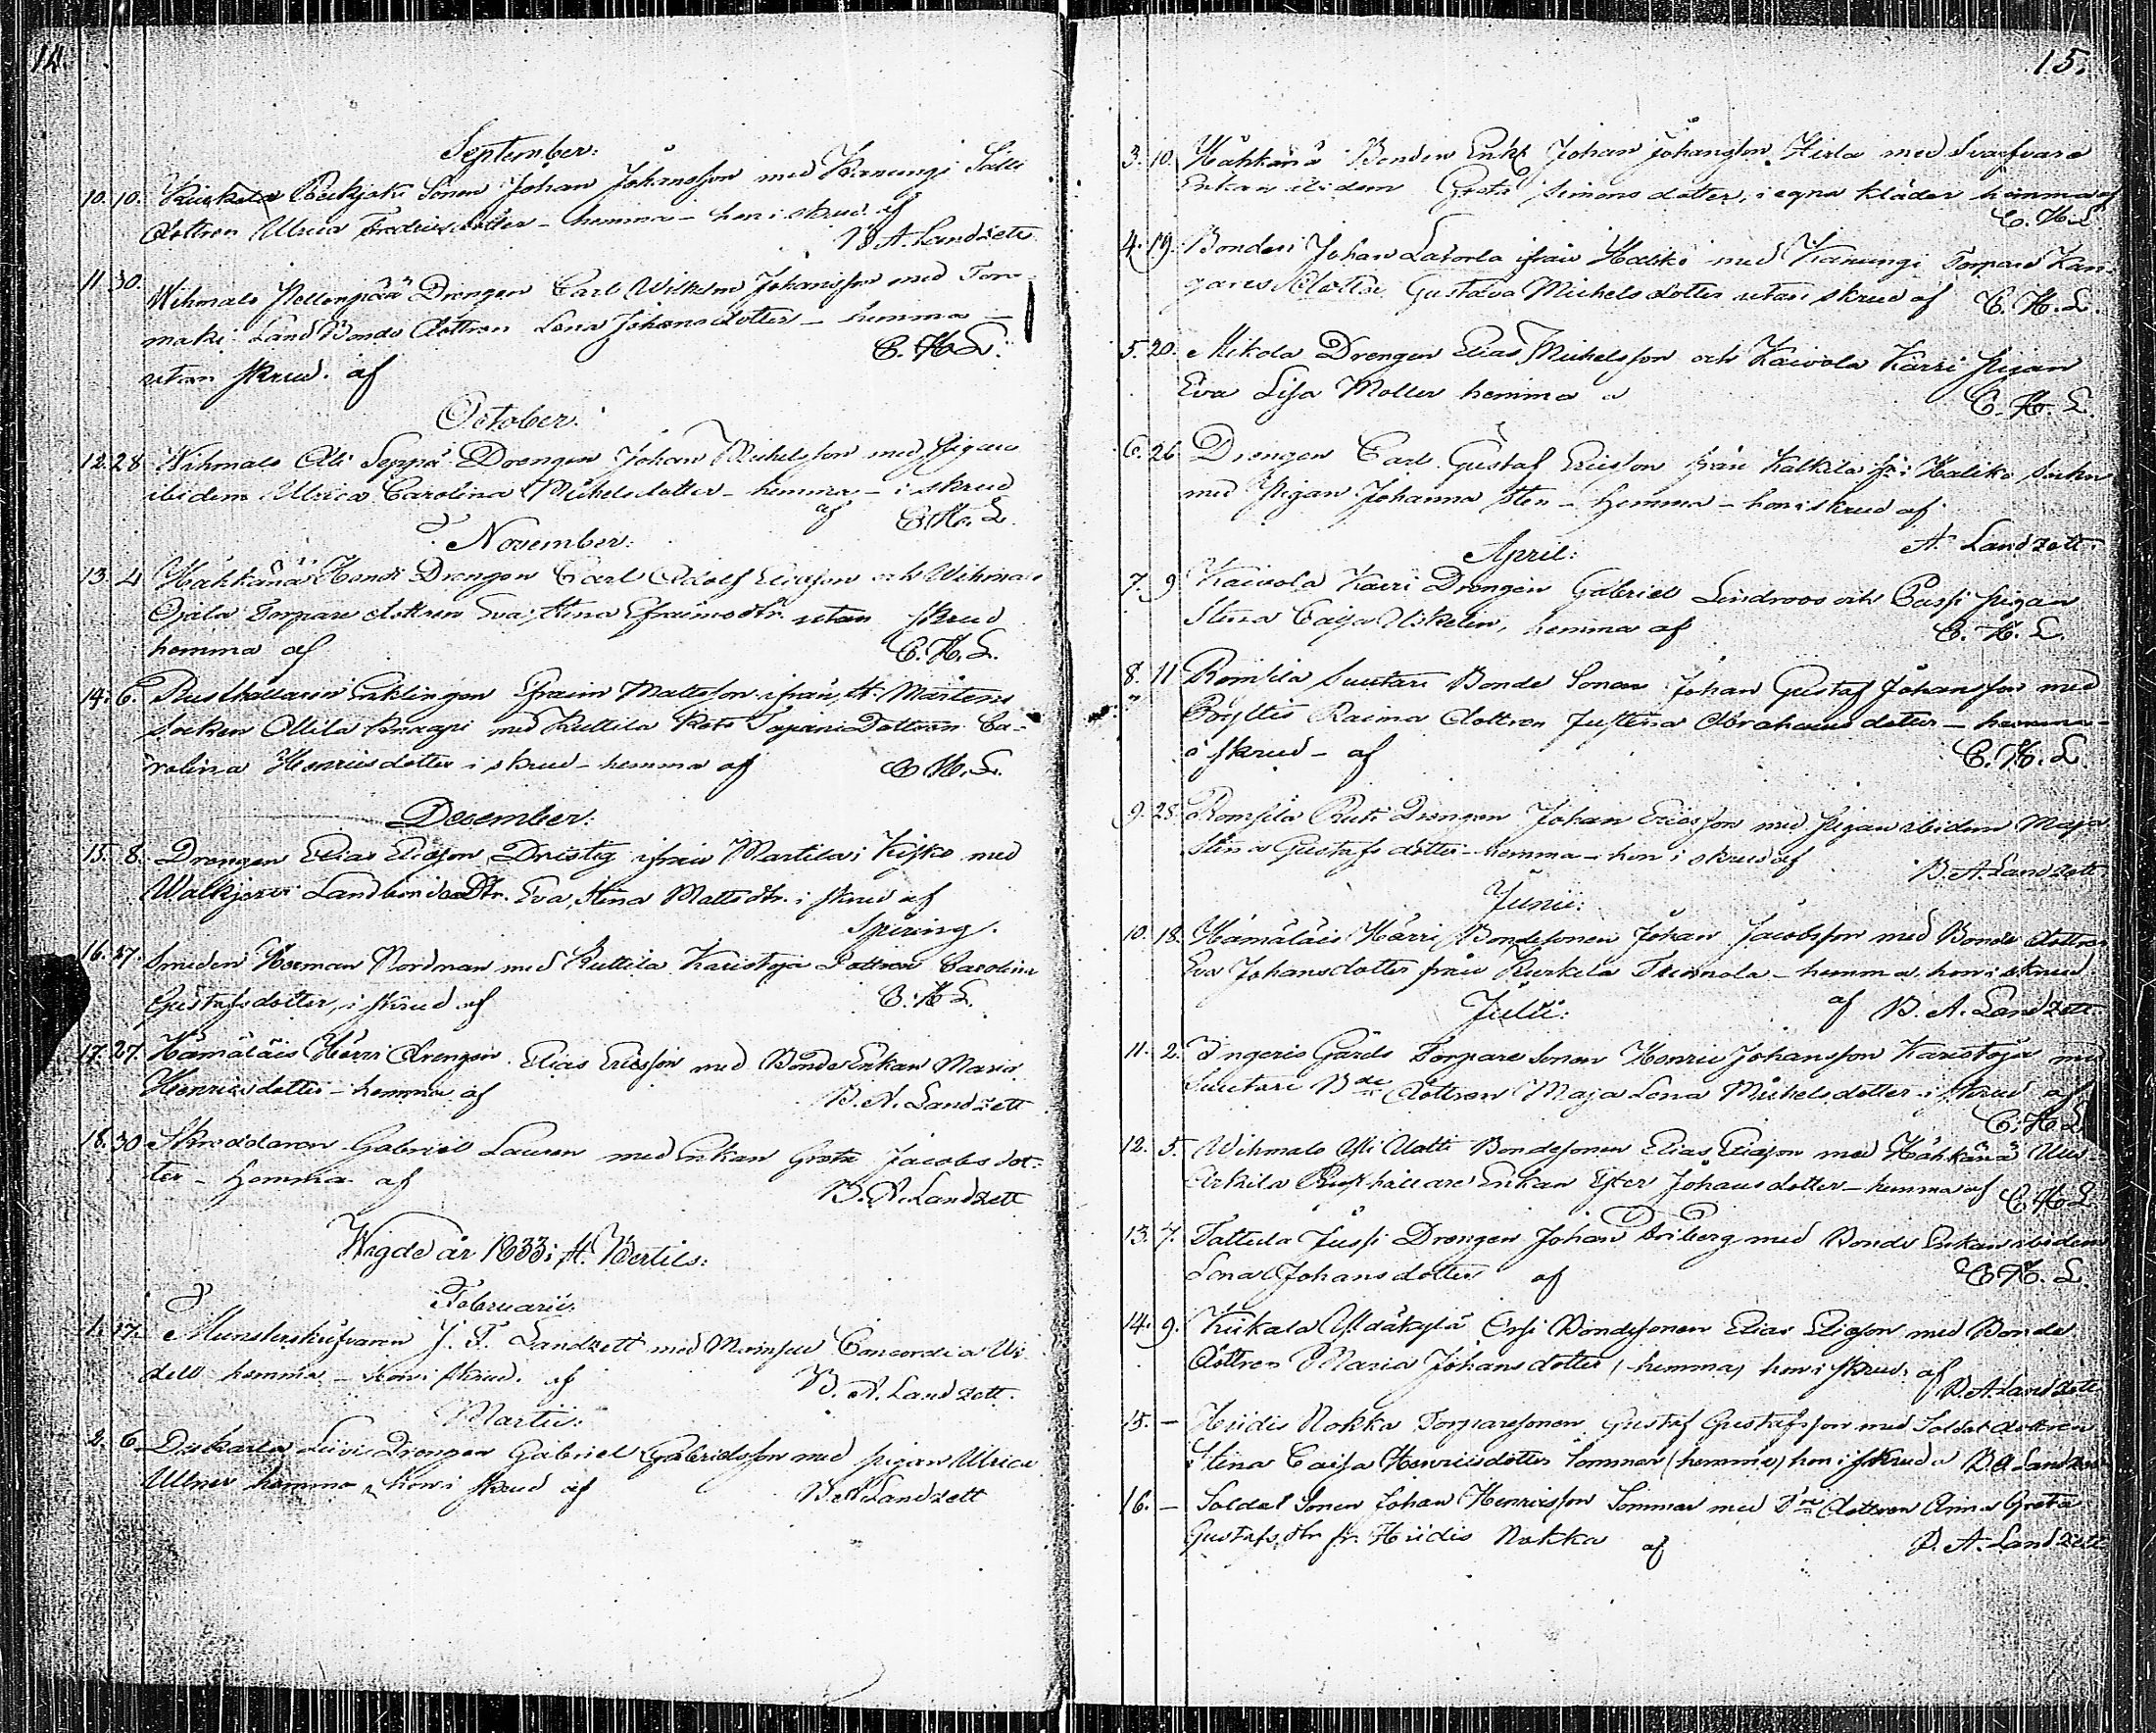 14.
September:
10. 10. Kurkela Sonen Johan Johansson med Kanungi Salli
dottren Ulrica Fredricsdotter - hemma - hon i skrud af
B. A. Landzett
11. 30. Wihmalo Drengen Carl Wilhelm Johansson med Torre
maki Landbonde dottren Lena Johansdotter - hemma -
utan skrud. af C. H. L.
October:
12. 28. Wihmalo Ali Seppä Drengen Johan Michelsson med Pigan
ibidem Ulrica Carolina Michelsdotter - hemma - i skrud
af C. H. L.
November:
13. 4. Håhkänä Hendi Drengen Carl Adolf Ericsson och Wihmalo
Ojala Torpare dottren Eva Stina Efraimsdtr. utan skrud
hemma af C. H. L.
14. 6. Rusthållaren Enklingen Efraim Mattsson ifrån St. Mårtens
Socken Ollila Knaapi med Kuttila Dottren Ca-
rolina Henricsdotter i skrud - hemma af C. H. L.
December:
15. 8. Drengen Elias Eliasson Dristig ifrån Martila i Kisko med
Walkjervi Landbonde Dtr. Eva Stina Mattsdtr. i skrud af
Spiring.
16. 27. Smeden Herman Nordman med Kuttila Karistoja Dottren Carolina
Gustafsdotter, i skrud af C. H. L.
17. 27. Hämäläis Härri drengen Elias Ericsson med Bonde Enkan Maria
Henricsdotter - hemma af B. A. Landzett
18. 30. Skreddaren Gabriel Lauren med Enkan Greta Jacobsdot-
ter - Hemma af B. A. Landzett
Wigde år 1833 i St. Bertils:
Februarii:
1. 17. Munsterskrifvaren J. F. Landzett med Mamsell Concordia Wi-
dell hemma - hon i skrud. af B. A. Landzett.
Martii:
2. 6. Drengen Gabriel Gabrielsson med pigan Ulrica
Ulner hemma, hon i skrud af B. A. Landzett
15.
3. 10. Håhkänä Bonden Enkl Johan Johansson Hirla med Svarfvare
Enkan ibidem Greta Simonsdotter, i egna kläder hemma af
C. H. L.
4. 19. Bonden Johan Latorla ifrån Haliko med Kanungi Torpare Kan-
gares dotter Gustava Michelsdotter utan skrud af C. H. L.
5. 20. Mikola Drengen Elias Michelsson och Kaivola Karri Pigan
Eva Lisa Moller hemma a C. H. L.
6. 26. Drengen Carl Gustaf Ericsson från Kalkila i Haliko Sockn
med Pigan Johanna Sten - Hemma - hon i skrud af
A. Landzett
April:
7. 9. Kaivola Karri Drengen Gabriel Lindroos och Passi pigan
Stina Caisa Wikelin, hemma af C. H. L.
8. 11. Romsila Suutari Bonde Sonen Johan Gustaf Johansson med
Pöyliö Raima dottren Justina Abrahamsdotter - hemma -
i skrud - af C. H. L.
9. 25. Romsila Ruti Drengen Johan Ericsson med pigan ibidem Maja
Stina Gustafsdotter - hemma - hon i skrud af
B. A. Landzett
Junii:
10. 18. Hämäläis Härri Bondesonen Johan Jacobsson med Bonde dottren
Eva Johansdotter från Kurkela Tuomola - hemma, hon i skrud
af B. A. Landzett
Julii:
11. 2. Ingeris Gårds Torpare Sonen Henric Johansson Karistoja med
Suutari Bde dottren Maja Lena Michelsdotter i skrud af
C. H. L.
12. 5. Wihmalo Yli Uotti Bondesonen Elias Eliasson med Håhkänä Uus-
Arkila Rusthållare Enkan Ester Johansdotter - hemma af C. H. L.
13. 7. Tattula Jussi Drengen Johan Friberg med Bonde Enkan ibidem
Lena Johansdotter af C. H. L.
14. 9. Kiikala Yldäkylä Erfi Bondesonen Elias Eliasson med Bonde
dottren Maria Johansdotter (hemma) hon i skrud. af
B. A. Landzett
15. - Hiidis Nokka Torparesonen Gustaf Gustafsson med Soldat dottren
Stina Caisa Henricsdotter Sommar (hemma) hon i skrud a B. A. Landzett
16. - Soldat Sonen Johan Henricsson Sommar med Tre dottren Anna Greta
Gustafsdtr fr. Hiidis Nokka af B. A. Landzett